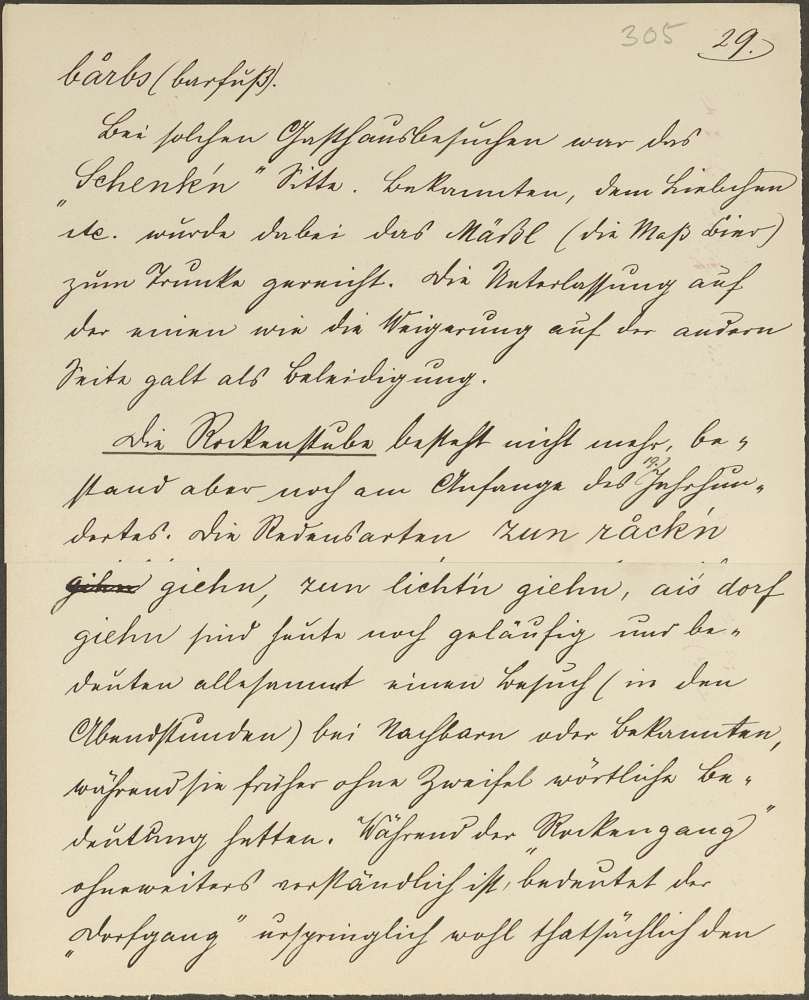 305 29.
bårbs (barfuß).
Bei solchen Gasthausbesuchen war das
„Schenk'n" Sitte. Bekannten, dem Liebchen
etc. wurde dabei das Mäßl (die Maß Bier)
zum Trunke gereicht. Die Unterlassung auf
der einen wie die Weigerung auf der andern
Seite galt als Beleidigung.
Die Rockenstube besteht nicht mehr, be-
stand aber noch am Anfange des 19. Jahrhun-
dertes. Die Redensarten zun råck'n
giehn, zun licht'n giehn, ais dorf
giehn sind heute noch geläufig und be-
deuten allesammt einen Besuch (in den
Abendstunden) bei Nachbarn oder Bekannten,
während sie früher ohne Zweifel wörtliche Be-
deutung hatten. Während der „Rockengang"
ohneweiters verständlich ist, bedeutet der
„Dorfgang" urspringlich wohl thatsächlich den